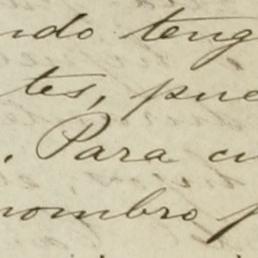 ndo teng
tes, pue
. Para cu
nombro p